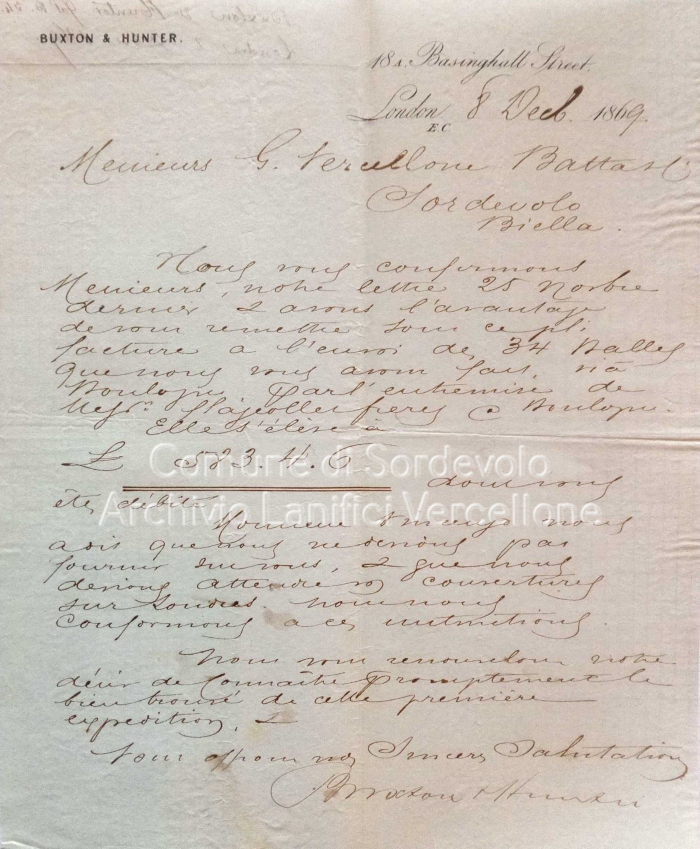 BUXTON & HUNTER.
18A. Basinghall Street.
London E.C. 8 Decb. 1869.
Messieurs G. Vercellone Battast
Sordevolo
Biella.
Nous vous confirmons
Messieurs, notre lettre 25 Novbre
dernier & avons l'avantage
de vous remettre sous ce pli
facture a l'envoi de 34 Balles
que nous vous avons fait, via
Boulogne par l'entremise de
Messrs. frères a Boulogne.
Elle s'élève a
£ 523.4.6
dont vous
êtes débités
Comune di Sordevolo
Archivio Lanifici Vercellone
Monsieur nous
a dit que nous ne devions pas
fournir sur vous, & que nous
devions attendre vos couvertures
sur Londres. nous nous
conformons a ces instructions.
Nous vous renouvelons notre
désir de connaître promptement le
bien trouvé de cette première
expedition, &
Vous offrons nos Sincères Salutations
Buxton & Hunter